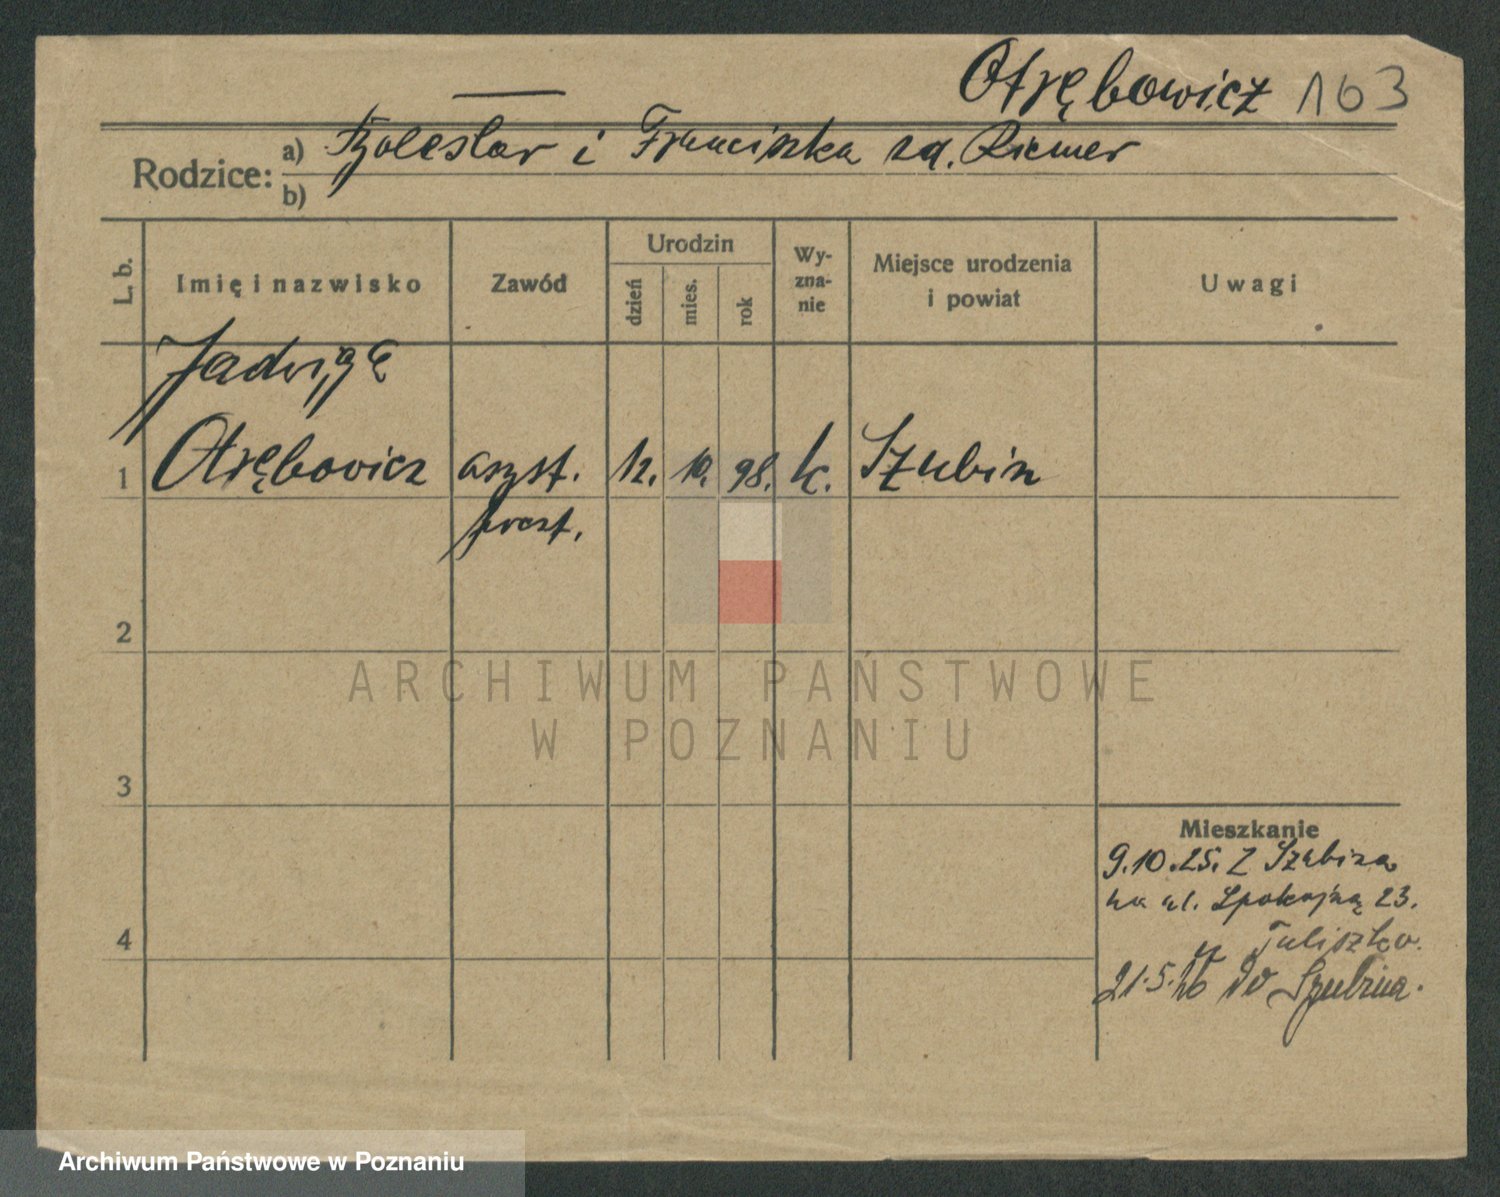 Otrębowicz 163
Rodzice: a) Bolesław i Franciszka zd. Riemer
b)
L. b.
Imię i nazwisko
Zawód
Urodzin
dzień
mies.
rok
Wy-
zna-
nie
Miejsce urodzenia
i powiat
Uwagi
Jadwiga
1 Otrębowicz asyst. 12. 10. 98. k. Szubin
poczt.
2
3
4
Mieszkanie
9.10.25. Z Szubina
na ul. Spokojną 23.
u Tuliszka.
21.5.26 do Szubina.
ARCHIWUM PAŃSTWOWE
W POZNANIU
Archiwum Państwowe w Poznaniu